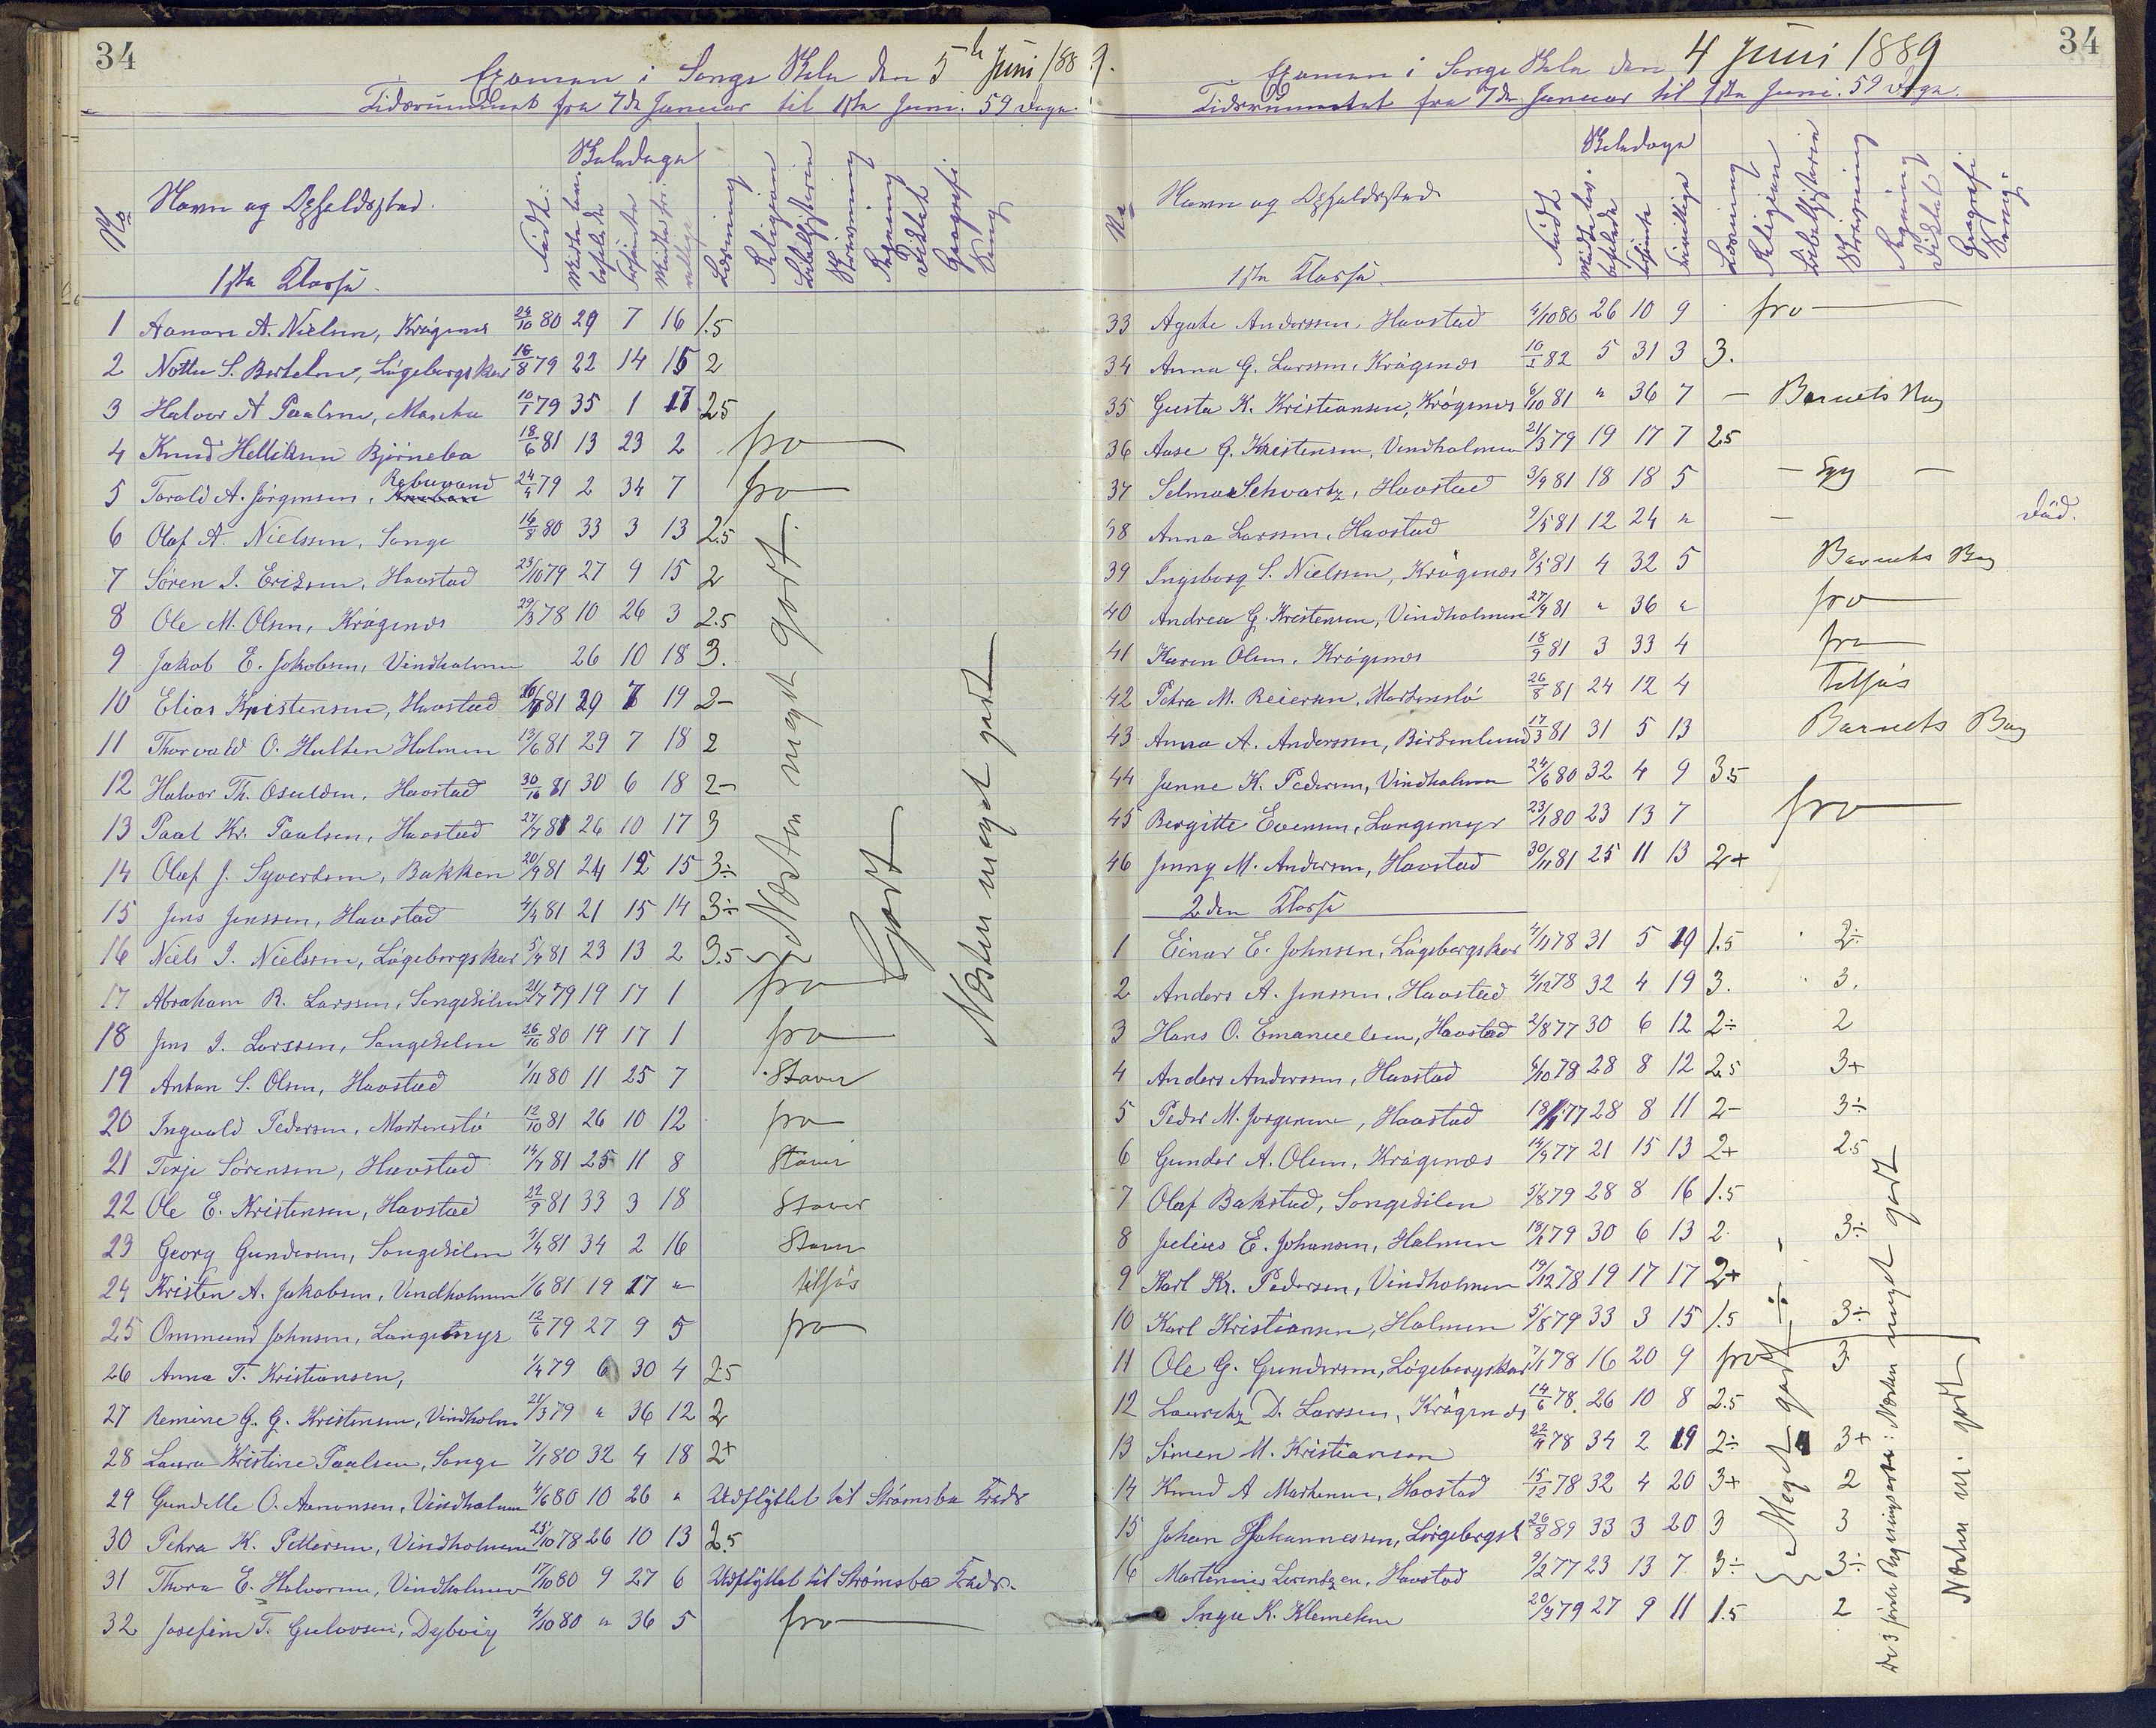 34
Examen i Songe Skole den 5te Juni 1889.
Tidsrummet fra 7de Januar til 1ste Juni. 59 Dage.
No
Navn og Opholdsstad.
Født
Skoledage
Læsning
Religion
Bibelhistorie
Skrivning
Regning
Diktat
Geografi
Sang
1ste Klasse.
1 Aanon A. Nielsen, Kragenes 24/10 80 29 7 16 1.5
2 Notto S. Bertelsen, Løgebergskar 16/8 79 22 14 15 2
3 Halvor A Paulsen, 10/1 79 35 1 17 2.5
4 Knud Helliksen Bjørnebo 18/6 81 13 23 2 fra
5 Torald A. Jørgensen, 24/4 79 2 34 7 fra
6 Olaf A. Nielssen, Songe 16/8 80 33 3 13 2.5
7 Søren I. Eriksen, Havstad 23/10 79 27 9 15 2
8 Ole M. Olsen, Kragenes 29/3 78 10 26 3 2.5
9 Jakob E. Jakobsen, Vindholmen 26 10 18 3.
10 Elias Kristensen, Havstad 16/7 81 29 7 19 2-
11 Thorvald O. Hulten Holmen 13/6 81 29 7 18 2
12 Halvor Th. Osuldsen, Havstad 30/10 81 30 6 18 2-
13 Paal Kr. Paulsen, Havstad 27/7 81 26 10 17 3
14 Olaf J. Syvertsen, Bakken 20/9 81 24 12 15 3÷
15 Jens Jenssen, Havstad 4/4 81 21 15 14 3÷
16 Niels I. Nielssen, Løgebergskar 5/4 81 23 13 2 3.5
17 Abraham R. Larssen, Songekilen 21/7 79 19 17 1 fra
18 Jens I. Larssen, Songekilen 26/10 80 19 17 1 fra
19 Anton S. Olsen, Havstad 1/11 80 11 25 7 Staver
20 Ingvald Pedersen, Mortensbø 12/10 81 26 10 12 fra
21 Terje Sørensen, Havstad 14/7 81 25 11 8 Staver
22 Ole E. Kristensen, Havstad 22/9 81 33 3 18 Staver
23 Georg Gundersen, Songekilen 3/4 81 34 2 16 Staver
24 Kristen A. Jakobsen, Vindholmen 1/6 81 19 17 " tilføs
25 Ommund Johnsen, Langemyr 12/6 79 27 9 5 fra
26 Anna T. Kristiansen, 1/4 79 6 30 4 2.5
27 Remine G. G. Kristensen, Vindholm 21/3 79 " 36 12 2
28 Laura Kristine Paulsen, Songe 7/1 80 32 4 18 2+
29 Gundelle O. Aanonsen, Vindholmen 4/6 80 10 26 " Udflyttet til Strømsbo Kreds
30 Petra K. Pettersen, Vindholmen 25/10 78 26 10 13 2.5
31 Thora E. Halvorsen, Vindholmen 17/10 80 9 27 6 Udflyttet til Strømsbo Kreds.
32 Josefine T. Gulovsen, Dybvig 4/10 80 " 36 5 fra
Næsten meget godt.
Godt
Næsten meget godt
34
Examen i Songe Skole den 4 Juni 1889
Tidsrummet fra 7de Januar til 1ste Juni. 59 Dage.
No
Navn og Opholdsstad
Født
Skoledage
Forsømte
Frivillige
Læsning
Religion
Bibelhistorie
Skrivning
Regning
Diktat
Geografi
Sang.
1ste Klasse.
33 Agate Anderssen, Havstad 4/10 80 26 10 9 fra
34 Anna G. Larssen, Kragenes 10/1 82 5 31 3 3.
35 Gusta K. Kristiansen, Kragenes 6/10 81 " 36 7 - Barnets Bog
36 Aase G. Kristensen, Vindholmen 21/3 79 19 17 7 2.5
37 Selma Schvartz, Havstad 3/9 81 18 18 5 - Syg -
38 Anna Larssen, Havstad 9/5 81 12 24 " - Død.
39 Ingeborg S. Nielssen, Kragenes 8/5 81 4 32 5 Barnets Bog
40 Andrea G. Kristensen, Vindholmen 27/9 81 " 36 " fra
41 Karen Olsen, Kragenes 18/9 81 3 33 4 fra
42 Petra M. Reiersen, Mortensbø 26/8 81 24 12 4 tilføs
43 Anna A. Anderssen, Birkenlund 17/3 81 31 5 13 Barnets Bog
44 Janne K. Pedersen, Vindholmen 24/6 80 32 4 9 3.5
45 Bergitte Evensen, Langemyr 23/1 80 23 13 7 fra
46 Jenny M. Andersen, Havstad 30/11 81 25 11 13 2+
2den Klasse
1 Einar E. Johnsen, Løgebergskar 4/11 78 31 5 19 1.5 2÷
2 Anders A. Jenssen, Havstad 4/12 78 32 4 19 3. 3.
3 Hans O. Emanuelsen, Havstad 2/8 77 30 6 12 2÷ 2
4 Anders Anderssen, Havstad 6/10 79 28 8 12 2.5 3+
5 Peder M. Jørgensen, Havstad 18/1 77 28 8 11 2- 3÷
6 Gunder A. Olsen, Kragenæs 14/9 77 21 15 13 2+ 2.5
7 Olaf Bakstad, Songekilen 5/8 79 28 8 16 1.5
8 Julius E. Johansen, Holmen 18/1 79 30 6 13 2. 3÷
9 Karl Kr. Pedersen, Vindholmen 19/12 78 19 17 17 2+
10 Karl Kristiansen, Holmen 5/8 79 33 3 15 1.5 3÷
11 Ole G. Gundersen, Løgebergskar 7/1 78 16 20 9 fra 3
12 Lauretz D. Larssen, Kragenes 14/6 78. 26 10 8 2.5
13 Simen M. Kristiansen 22/11 78 34 2 19 2÷ 3+
14 Knud A Martensen, Havstad 15/12 78 32 4 20 3+ 2
15 Johan Johannessen, Løgebergsk 26/3 89 33 3 20 3 3
16 Martenius Lorentzen, Havstad 9/2 77 23 13 7 3÷ 3÷
Inga K. Klemetsen 20/4 79 27 9 11 1.5 2
Meget godt ÷
De 3 første : Næsten meget godt
Næsten m. godt